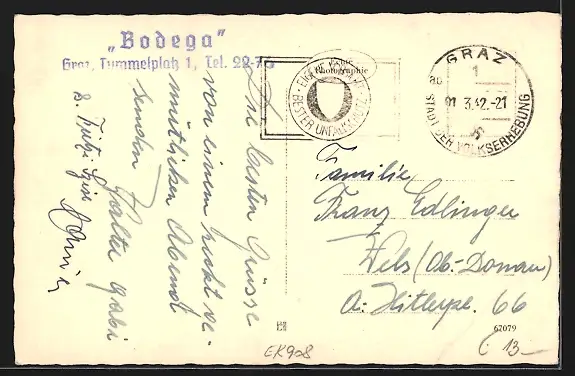 „Bodega"
Graz, Tummelplatz 1, Tel. 22-76
Die besten Grüsse
von einem recht ge-
mütlichen Abend
senden Walter Gabi
Echte
Photographie
BESTER UNFALLSCHUTZ
GRAZ
1
8b
21. 3.42.-21
STADT DER VOLKSERHEBUNG
Familie
Franz Edlinger
Wels (Ob.-Donau)
A. Hitlerpl. 66
67079
EK908
13.-